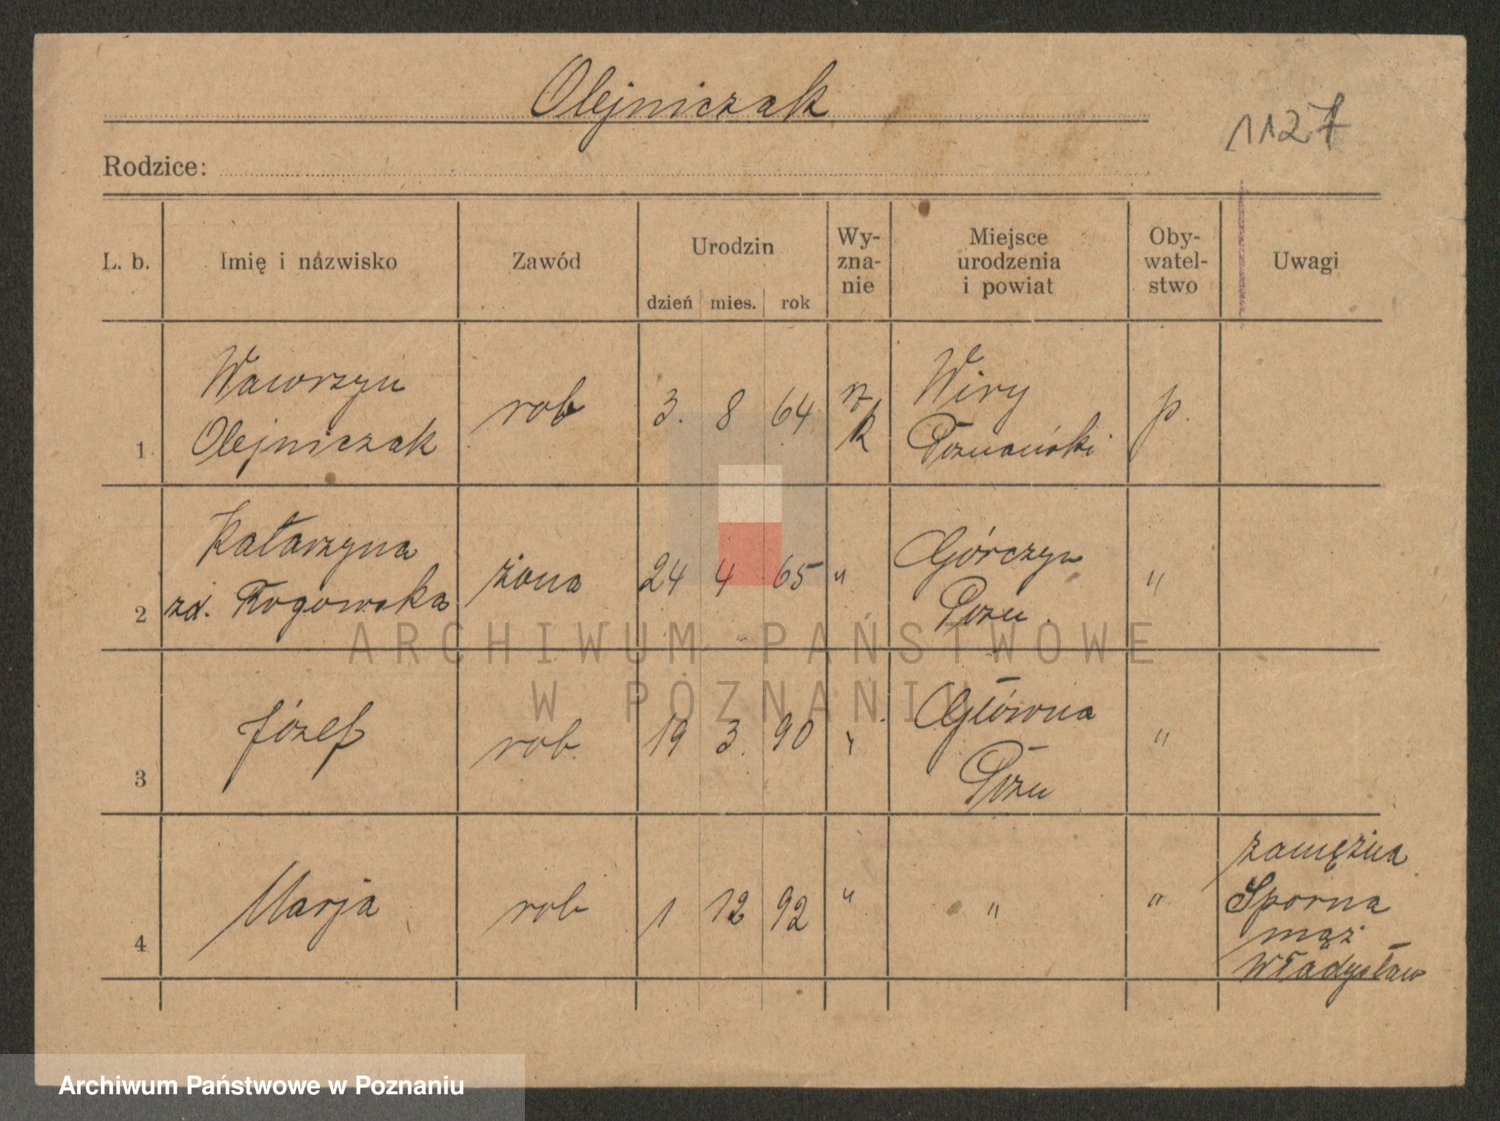 Olejniczak
1127
Rodzice:
L. b.
Imię i nazwisko
Zawód
Urodzin
dzień mies. rok
Wy-
zna-
nie
Miejsce
urodzenia
i powiat
Oby-
watel-
stwo
Uwagi
1
Wawrzyn
Olejniczak
rob
3. 8 64
rz
k
Wiry
Poznański
p.
2
Katarzyna
zd. Rogowska
żona
24 4 65
"
Górczyn
Pozn.
"
3
Józef
rob.
19 3. 90
"
Główna
Pozn
"
4
Marja
rob
1 12 92
"
"
"
zamężna
Sporna
mąż
Władysław
ARCHIWUM PAŃSTWOWE
W POZNANIU
Archiwum Państwowe w Poznaniu